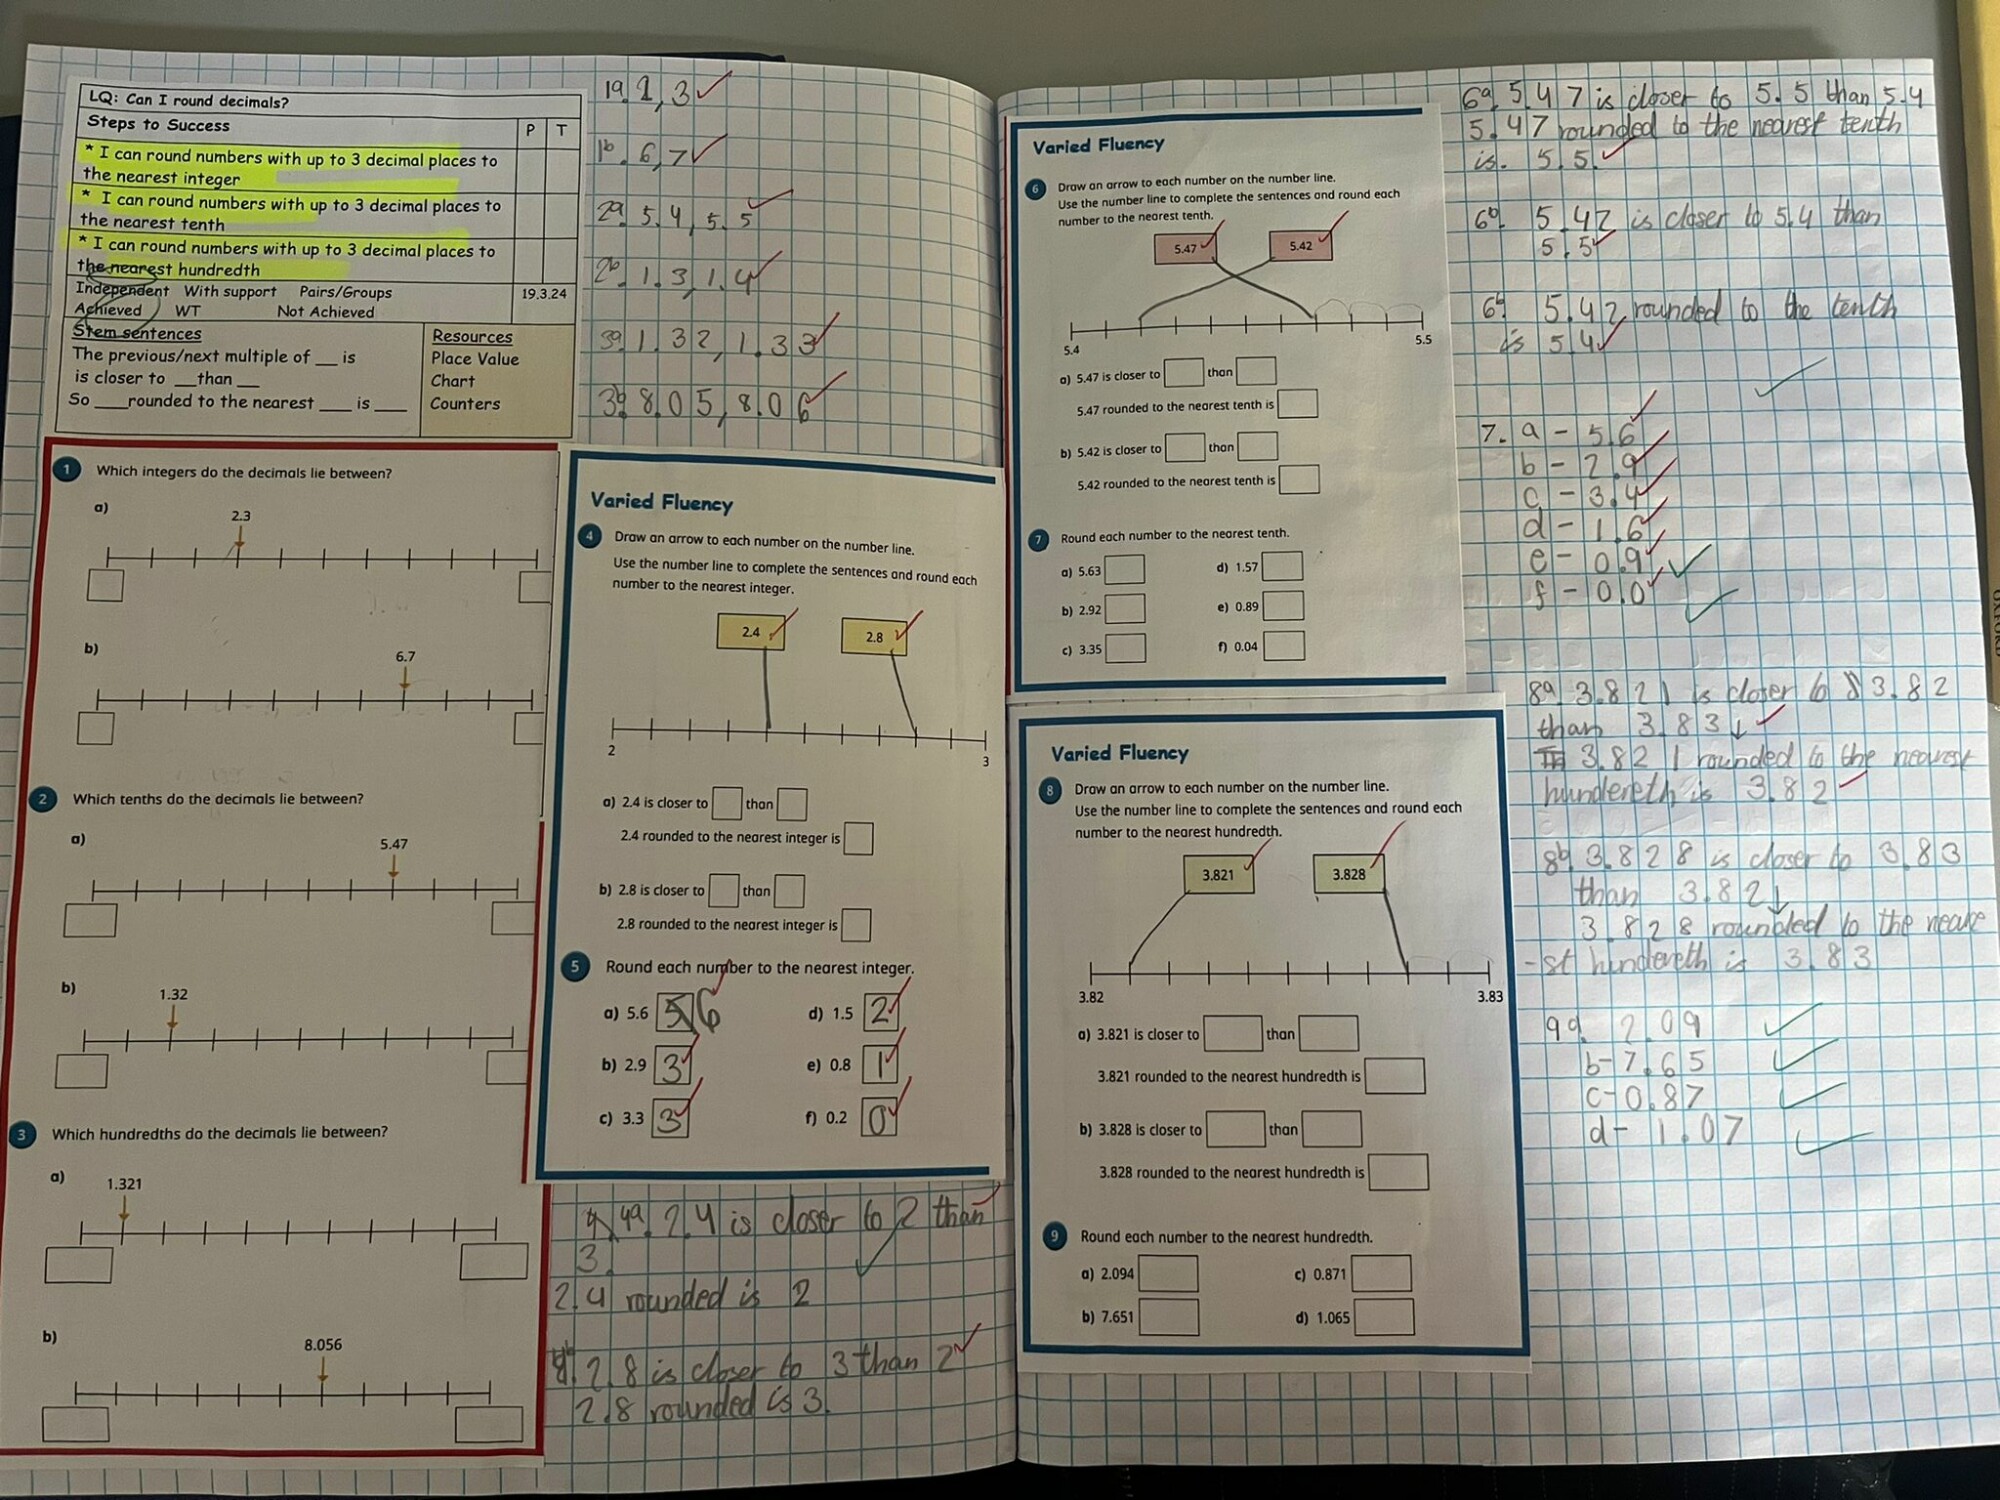 LQ: Can I round decimals?
Steps to Success P T
* I can round numbers with up to 3 decimal places to
the nearest integer
* I can round numbers with up to 3 decimal places to
the nearest tenth
* I can round numbers with up to 3 decimal places to
the nearest hundredth
Independent With support Pairs/Groups 19.3.24
Achieved WT Not Achieved
Stem sentences
The previous/next multiple of __ is
is closer to __than __
So ___rounded to the nearest ___ is ___
Resources
Place Value
Chart
Counters
1a. 2, 3
1b. 6, 7
2a. 5.4, 5.5
2b. 1.3, 1.4
3a. 1.32, 1.33
3b. 8.05, 8.06
1 Which integers do the decimals lie between?
a)
2.3
b)
6.7
2 Which tenths do the decimals lie between?
a)
5.47
b)
1.32
3 Which hundredths do the decimals lie between?
a)
1.321
b)
8.056
Varied Fluency
4 Draw an arrow to each number on the number line.
Use the number line to complete the sentences and round each
number to the nearest integer.
2.4 2.8
2 3
a) 2.4 is closer to than
2.4 rounded to the nearest integer is
b) 2.8 is closer to than
2.8 rounded to the nearest integer is
5 Round each number to the nearest integer.
a) 5.6 6 d) 1.5 2
b) 2.9 3 e) 0.8 1
c) 3.3 3 f) 0.2 0
4a. 2.4 is closer to 2 than
3.
2.4 rounded is 2
4b. 2.8 is closer to 3 than 2
2.8 rounded is 3.
Varied Fluency
6 Draw an arrow to each number on the number line.
Use the number line to complete the sentences and round each
number to the nearest tenth.
5.47 5.42
5.4 5.5
a) 5.47 is closer to than
5.47 rounded to the nearest tenth is
b) 5.42 is closer to than
5.42 rounded to the nearest tenth is
7 Round each number to the nearest tenth.
a) 5.63 d) 1.57
b) 2.92 e) 0.89
c) 3.35 f) 0.04
Varied Fluency
8 Draw an arrow to each number on the number line.
Use the number line to complete the sentences and round each
number to the nearest hundredth.
3.821 3.828
3.82 3.83
a) 3.821 is closer to than
3.821 rounded to the nearest hundredth is
b) 3.828 is closer to than
3.828 rounded to the nearest hundredth is
9 Round each number to the nearest hundredth.
a) 2.094 c) 0.871
b) 7.651 d) 1.065
6a. 5.47 is closer to 5.5 than 5.4
5.47 rounded to the nearest tenth
is. 5.5.
6b. 5.42 is closer to 5.4 than
5.5
6b. 5.42 rounded to the tenth
is 5.4
7. a - 5.6
b - 2.9
c - 3.4
d - 1.6
e - 0.9
f - 0.0
8a. 3.821 is closer to 3.82
than 3.83
3.821 rounded to the nearest
hundereth is 3.82
8b. 3.828 is closer to 3.83
than 3.82
3.828 rounded to the neare
-st hundereth is 3.83
9a. 2.09
b - 7.65
c - 0.87
d - 1.07
OXFORD